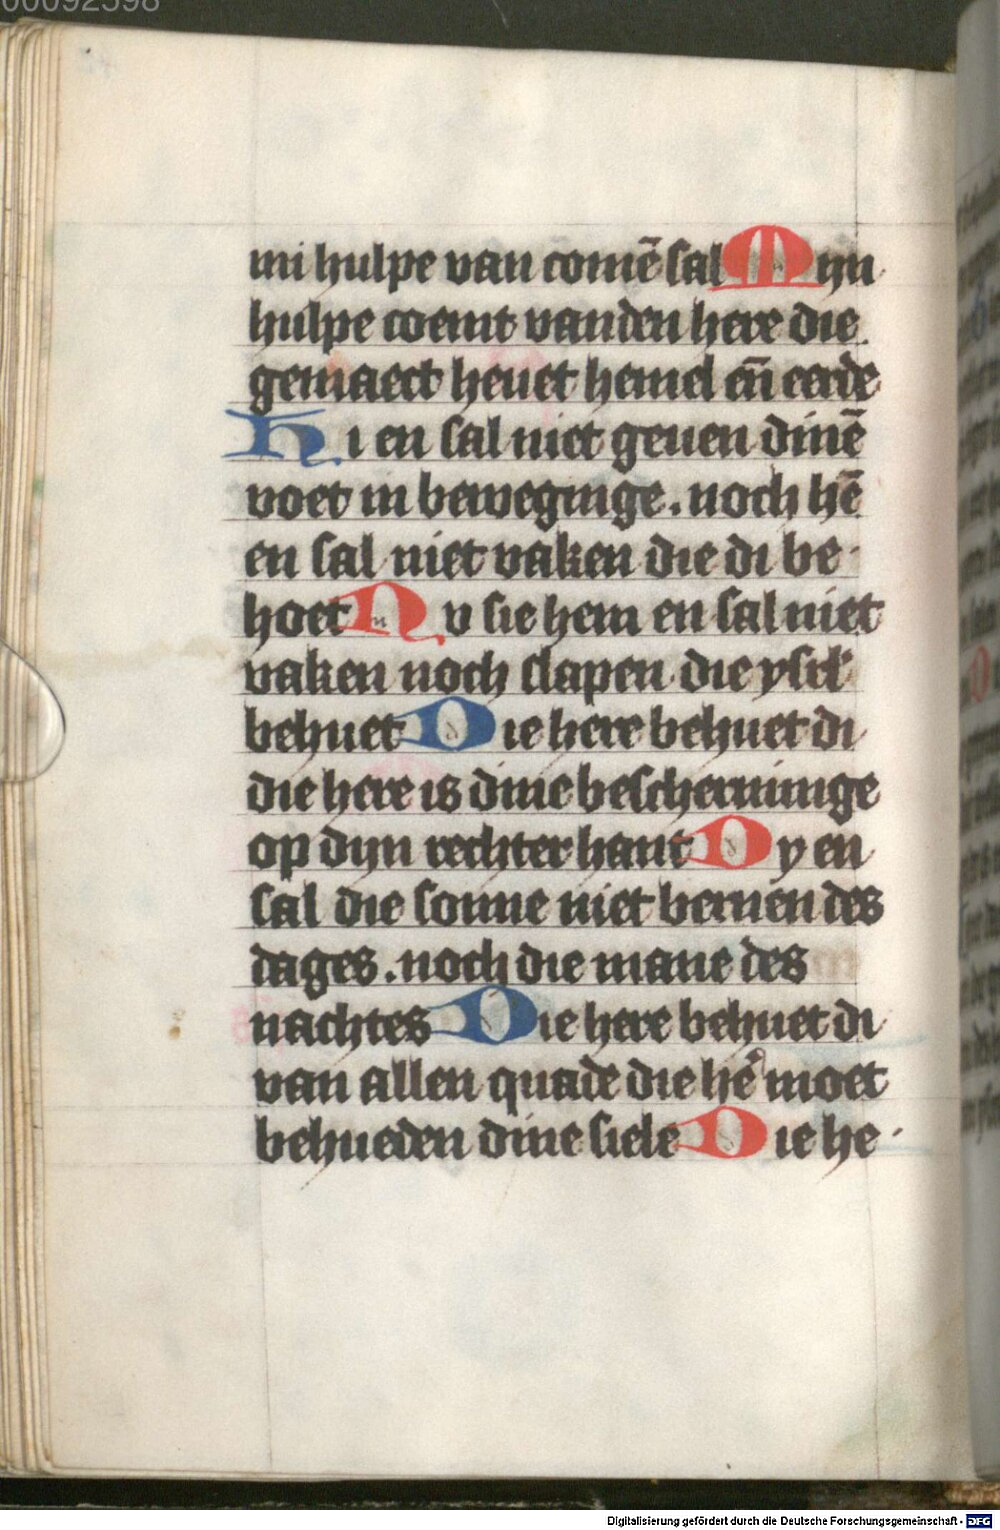 00092598
mi hulpe van comē sal Mijn
hulpe coemt vanden here die
gemaect heuet hemel eñ eerde
Hi en sal niet geuen dinē
voet in beweginge. noch hē
en sal niet vaken die di be-
hoet Nv sie hem en sal niet
vaken noch slapen die ysrl'
behuet Die here behuet di
die here is dine beschermige
op dijn rechter hant Dy en
sal die sonne niet bernen des
dages. noch die mane des
nachtes Die here behuet di
van allen quade die hē moet
behueden dine siele Die he-
Digitalisierung gefördert durch die Deutsche Forschungsgemeinschaft - DFG